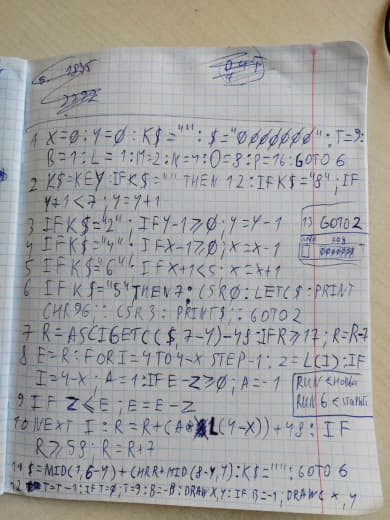 1835
1 X=Ø:Y=Ø:K$="":$="ØØØØØØØ":T=9:
B=1:L=1:M=2:N=4:O=8:P=16:GOTO 6
2 K$=KEY:IF K$="" THEN 12:IF K$="8";IF
Y+1<7;Y=Y+1
3 IF K$="2";IF Y-1≥Ø;Y=Y-1
4 IF K$="4";IF X-1≥Ø;X=X-1
5 IF K$="6";IF X+1<5:X=X+1
6 IF K$="5" THEN 7:CSR Ø:LETC $:PRINT
CHR 96;:CSR 3:PRINT $;:GOTO 2
7 R=ASCI GETC($,7-Y)-48:IF R≥17;R=R-7
8 E=R:FOR I=4 TO 4-X STEP-1:Z=L(I):IF
I=4-X;A=1:IF E-Z≥Ø;A=-1
9 IF Z≤E;E=E-Z
10 NEXT I:R=R+(A*L(4-X))+48:IF
R≥58;R=R+7
11 $=MID(1,6-Y)+CHR R+MID(8-Y,Y):K$="":GOTO 6
12 T=T-1:IF T=Ø;T=9:B=-B:DRAW X,Y:IF B=-1;DRAWC X,Y
13 GOTO 2
RUN
RUN 6